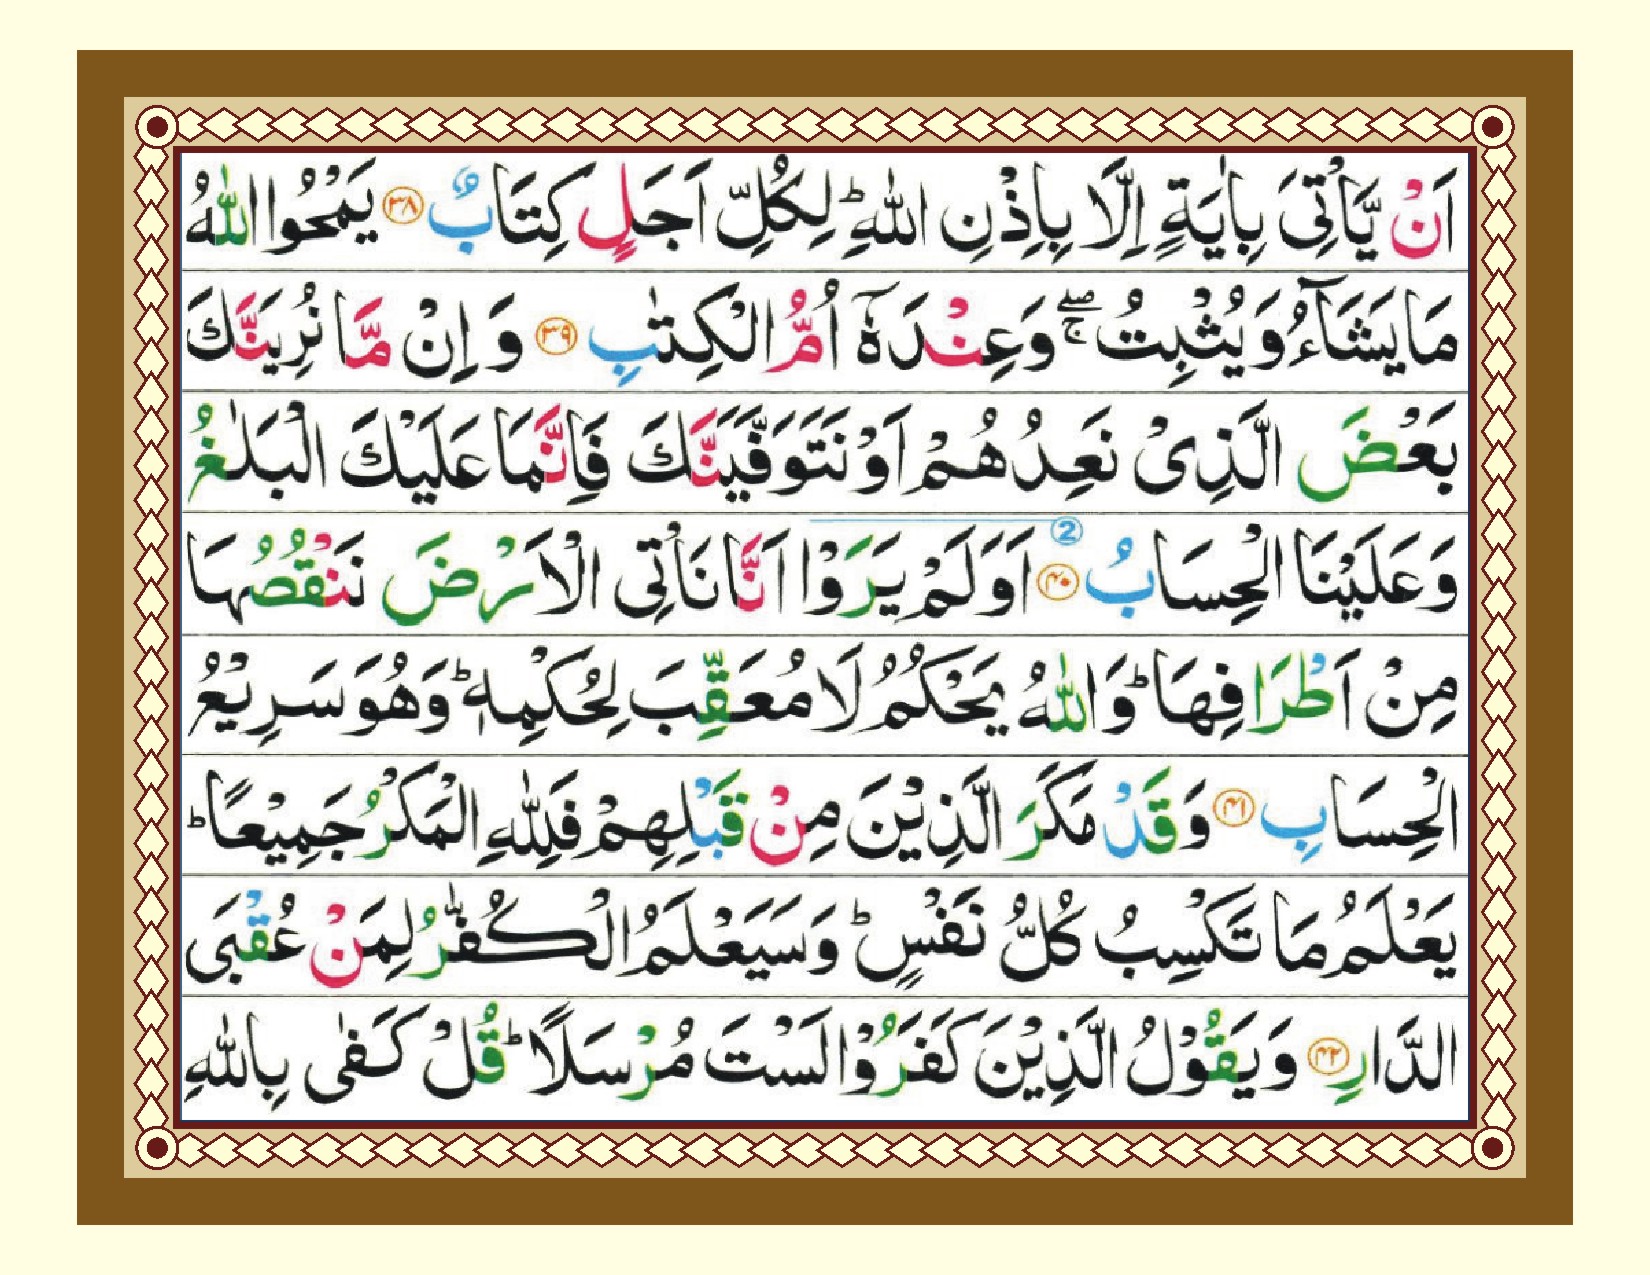 اَنْ یَّاْتِیَ بِاٰیَةٍ اِلَّا بِاِذْنِ اللّٰهِ ؕ لِكُلِّ اَجَلٍ كِتَابٌ ﴿۳۸﴾ یَمْحُوا اللّٰهُ
مَا یَشَآءُ وَ یُثْبِتُ ۚۖ وَعِنْدَهٗۤ اُمُّ الْكِتٰبِ ﴿۳۹﴾ وَ اِنْ مَّا نُرِیَنَّكَ
بَعْضَ الَّذِیْ نَعِدُهُمْ اَوْ نَتَوَفَّیَنَّكَ فَاِنَّمَا عَلَیْكَ الْبَلٰغُ
وَعَلَیْنَا الْحِسَابُ ﴿۴۰﴾ 2 اَوَلَمْ یَرَوْا اَنَّا نَاْتِی الْاَرْضَ نَنْقُصُهَا
مِنْ اَطْرَافِهَا ؕ وَاللّٰهُ یَحْكُمُ لَا مُعَقِّبَ لِحُكْمِهٖ ؕ وَهُوَ سَرِیْعُ
الْحِسَابِ ﴿۴۱﴾ وَقَدْ مَكَرَ الَّذِیْنَ مِنْ قَبْلِهِمْ فَلِلّٰهِ الْمَكْرُ جَمِیْعًا ؕ
یَعْلَمُ مَا تَكْسِبُ كُلُّ نَفْسٍ ؕ وَسَیَعْلَمُ الْكُفّٰرُ لِمَنْ عُقْبَی
الدَّارِ ﴿۴۲﴾ وَ یَقُوْلُ الَّذِیْنَ كَفَرُوْا لَسْتَ مُرْسَلًا ؕ قُلْ كَفٰی بِاللّٰهِ